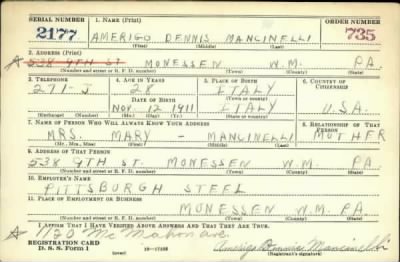 SERIAL NUMBER 1. NAME (Print) ORDER NUMBER
2177 AMERIGO DENNIS MANCINELLI 735
(First) (Middle) (Last)
2. ADDRESS (Print)
538 9TH ST MONESSEN W.M. PA
(Number and street or R. F. D. number) (Town) (County) (State)
3. TELEPHONE 4. AGE IN YEARS 5. PLACE OF BIRTH 6. COUNTRY OF CITIZENSHIP
271-J 28 ITALY
DATE OF BIRTH (Town or county)
NOV. 12 1911 ITALY U.S.A.
(Exchange) (Number) (Mo.) (Day) (Yr.) (State or country)
7. NAME OF PERSON WHO WILL ALWAYS KNOW YOUR ADDRESS 8. RELATIONSHIP OF THAT PERSON
MRS. MARY - MANCINELLI MOTHER
(Mr., Mrs., Miss) (First) (Middle) (Last)
9. ADDRESS OF THAT PERSON
538 9TH ST. MONESSEN W.M. PA
(Number and street or R. F. D. number) (Town) (County) (State)
10. EMPLOYER'S NAME
PITTSBURGH STEEL
11. PLACE OF EMPLOYMENT OR BUSINESS
MONESSEN W.M. PA
(Number and street or R. F. D. number) (Town) (County) (State)
I AFFIRM THAT I HAVE VERIFIED ABOVE ANSWERS AND THAT THEY ARE TRUE.
1120 McMahon Ave.
REGISTRATION CARD
D. S. S. Form 1 (over) Amerigo Dennis Mancinelli
(Registrant's signature)